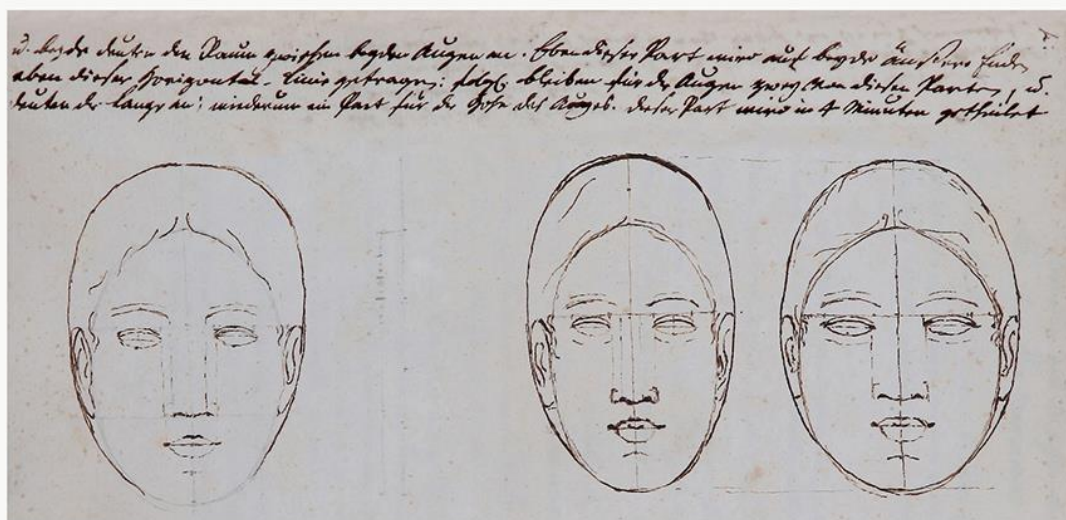 u. beyde deuten den Raum zwischen beyden Augen an. Eben dieser Part wird auf beyde äußere Ende
eben dieser Horizontal-Linie getragen: folgl. bleiben für die Augen zwey von diesen Parten, u.
deuten die Länge an; wiederum ein Part für die Höhe des Auges. dieser Part wird in 4 Minuten getheilet